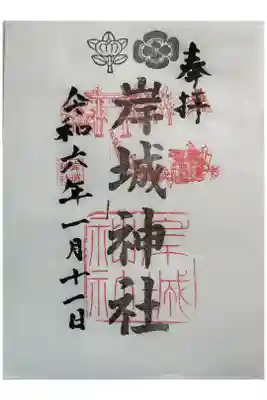 奉拝
岸城神社
令和六年一月十一日
岸城神社